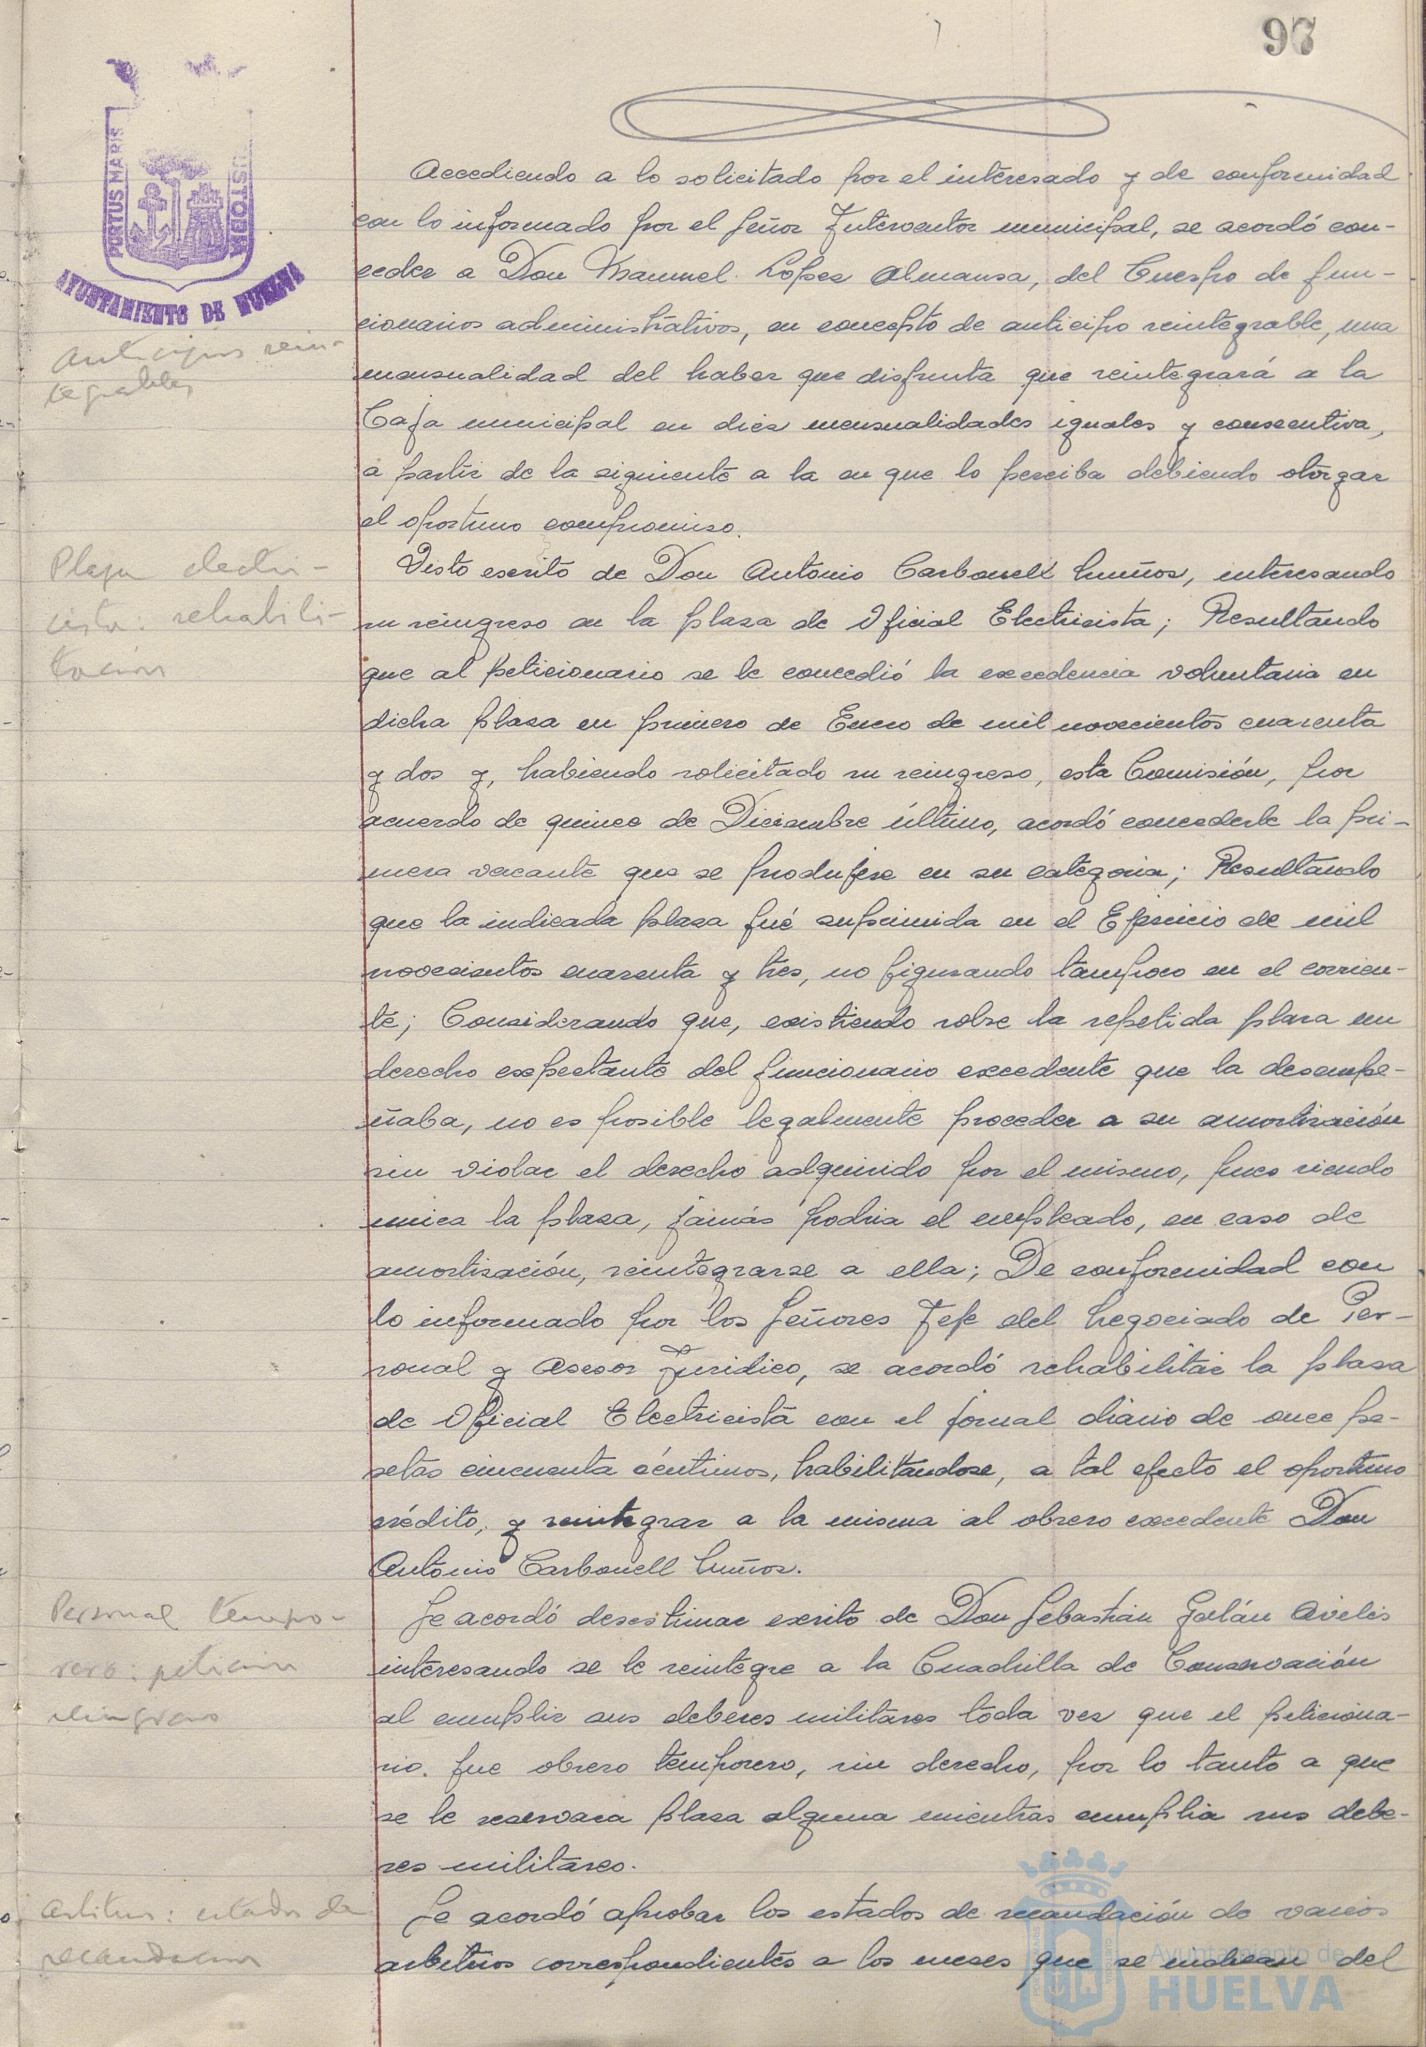 97
PORTUS MARIS
CUSTODIA
AYUNTAMIENTO DE HUELVA
Accediendo a lo solicitado por el interesado y de conformidad
con lo informado por el Señor Interventor municipal, se acordó con-
ceder a Don Manuel Lopez Almansa, del Cuerpo de fun-
cionarios administrativos, en concepto de anticipo reintegrable, una
mensualidad del haber que disfruta que reintegrará a la
Caja municipal en diez mensualidades iguales y consecutiva,
a partir de la siguiente a la en que lo perciba debiendo otorgar
el oportuno compromiso.
Anticipos rein-
tegrables
Visto escrito de Don Antonio Carbonell Muñoz, interesando
su reingreso en la plaza de Oficial Electricista; Resultando
que al peticionario se le concedió la excedencia voluntaria en
dicha plaza en primero de Enero de mil novecientos cuarenta
y dos y, habiendo solicitado su reingreso, esta Comisión, por
acuerdo de quince de Diciembre último, acordó concederle la pri-
mera vacante que se produjese en su categoria; Resultando
que la indicada plaza fué suprimida en el Ejercicio de mil
novecientos cuarenta y tres, no figurando tampoco en el corrien-
te; Considerando que, existiendo sobre la repetida plaza un
derecho expectante del funcionario excedente que la desempe-
ñaba, no es posible legalmente proceder a su amortización
sin violar el derecho adquirido por el mismo, pues siendo
unica la plaza, jamás podria el empleado, en caso de
amortización, reintegrarse a ella; De conformidad con
lo informado por los Señores Jefe del Negociado de Per-
sonal y Asesor Juridico, se acordó rehabilitar la plaza
de Oficial Electricista con el jornal diario de once pe-
setas cincuenta céntimos, habilitandose, a tal efecto el oportuno
crédito, y reintegrar a la misma al obrero excedente Don
Antonio Carbonell Muñoz.
Plaza electri-
cista: rehabili-
tación
Se acordó desestimar escrito de Don Sebastián Galán Avilés
interesando se le reintegre a la Cuadrilla de Conservación
al cumplir sus deberes militares toda vez que el peticiona-
rio. fue obrero temporero, sin derecho, por lo tanto a que
se le reservara plaza alguna mientras cumplia sus debe-
res militares.
Personal tempo-
rero: petición
reingreso
Se acordó aprobar los estados de recaudación de varios
arbitrios correspondientes a los meses que se indican del
Arbitrios: estados de
recaudación
Ayuntamiento de
HUELVA